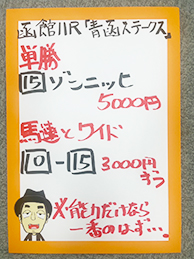 函館11R「青函ステークス」
単勝
⑮ゾンニッヒ
5000円
馬連とワイド
⑩-⑮ 3000円
ずつ
※能力だけなら
一番のはず…。